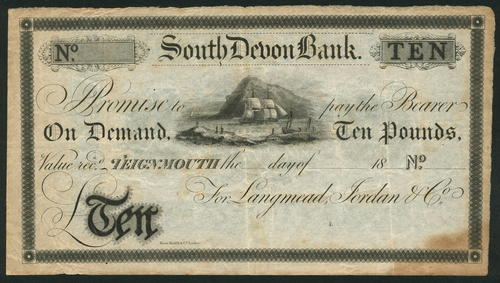 No. South Devon Bank. TEN
I Promise to pay the Bearer
On Demand, Ten Pounds,
Value rec.d TEIGNMOUTH the day of 18 No.
For Langmead, Jordan & Co.
£Ten